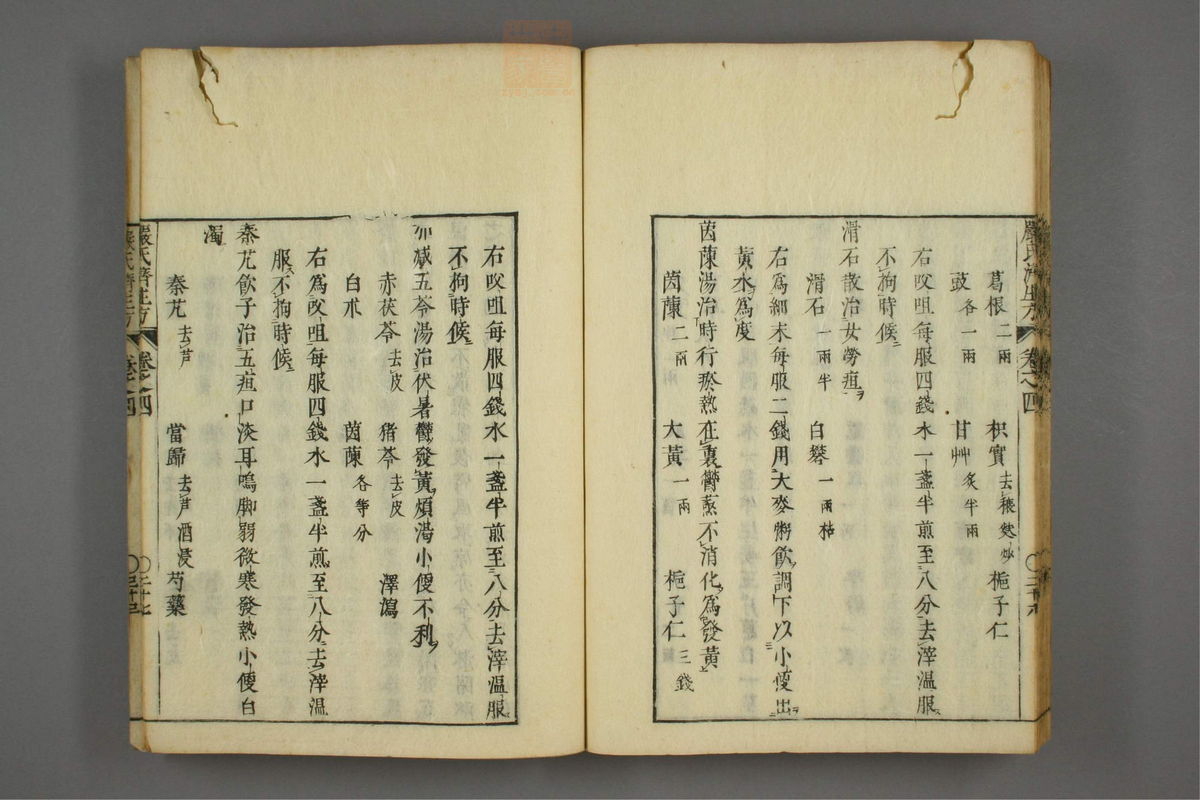 葛根二兩 枳實去穰麩炒 梔子仁
豉各一兩 甘艸炙半兩
右㕮咀每服四錢水一盞半煎至八分去滓溫服
不拘時候
滑石散治女勞疸
滑石一兩半 白礬一兩枯
右爲細末每服二錢用大麥粥飲調下以小便出
黃水爲度
茵蔯湯治時行瘀熱在裏鬱蒸不消化爲發黃
茵蔯二兩 大黃一兩 梔子仁三錢
右㕮咀每服四錢水一盞半煎至八分去滓溫服
不拘時候
加減五苓湯治伏暑鬱發黃煩渴小便不利
赤茯苓去皮 猪苓去皮 澤瀉
白朮 茵蔯各等分
右爲㕮咀每服四錢水一盞半煎至八分去滓溫
服不拘時候
秦艽飲子治五疸口淡耳嗚脚弱微寒發熱小便白
濁
秦艽去芦 當歸去芦酒浸 芍藥
嚴氏濟生方 卷之四